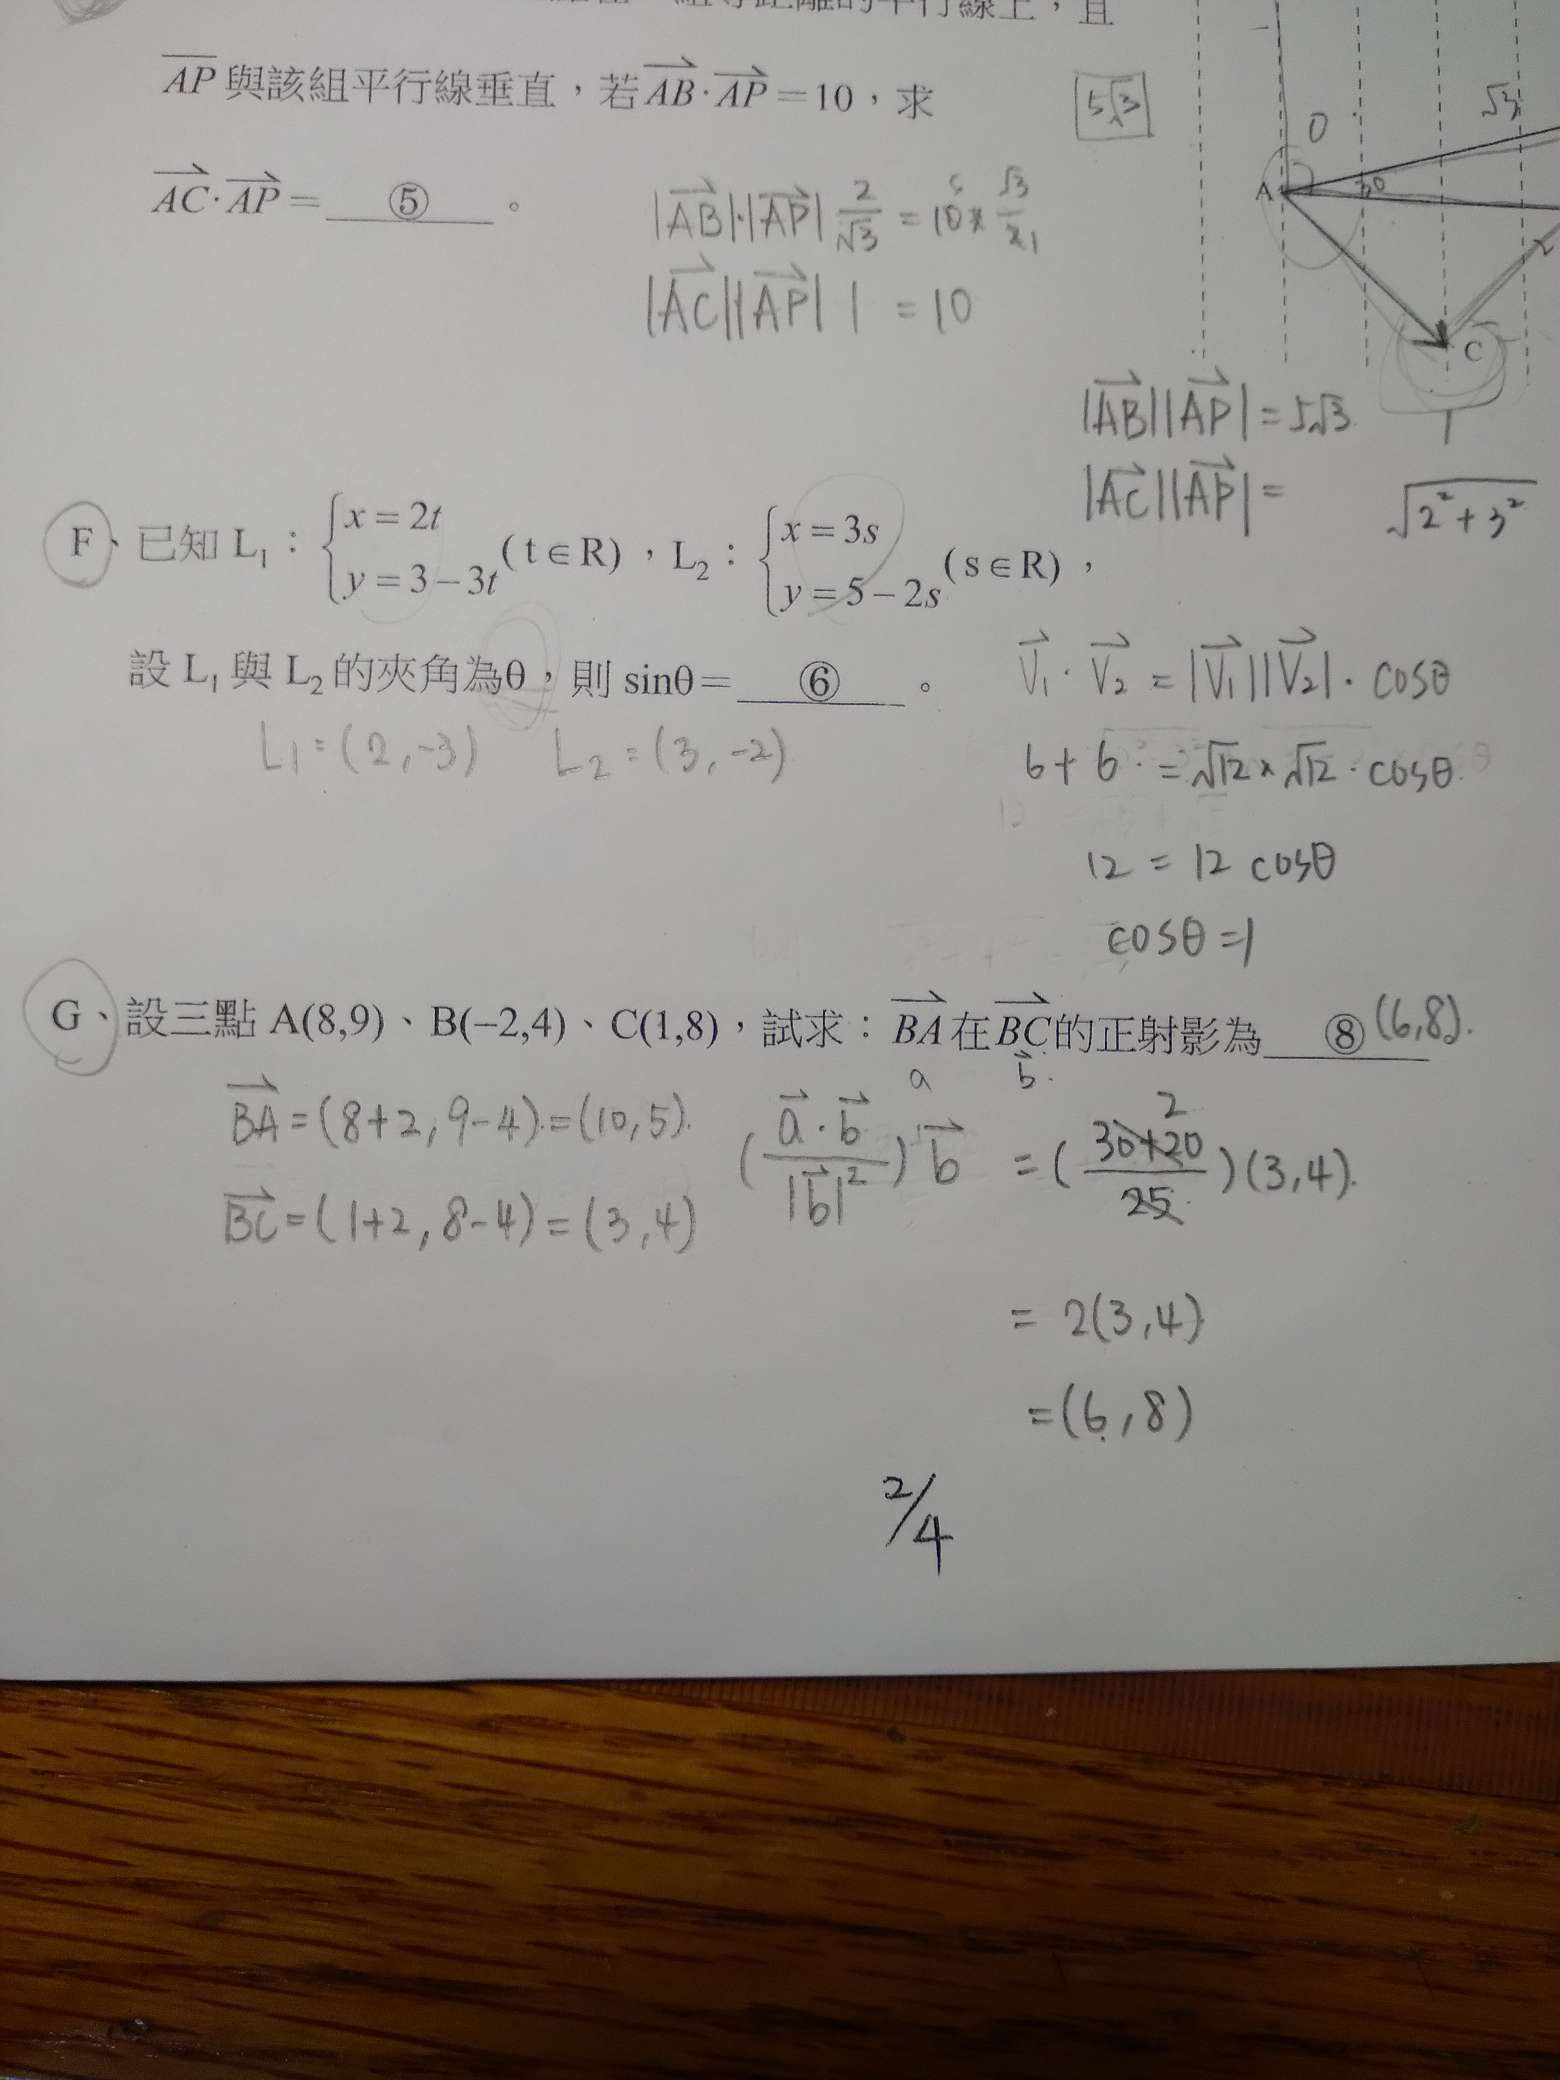 的平行線上，且
AP 與該組平行線垂直，若 AB·AP＝10，求
5√3
AC·AP＝ ⑤ 。
|AB|·|AP| 2/√3 = 10 × √3/2
5
1
|AC||AP| 1 = 10
0
√3
A
30
2
C
1
|AB||AP| = 5√3
|AC||AP| =
√2²+3²
F、已知 L₁：{x＝2t, y＝3－3t (t∈R)，L₂：{x＝3s, y＝5－2s (s∈R)，
設 L₁ 與 L₂ 的夾角為θ，則 sinθ＝ ⑥ 。
L₁ = (2, -3) L₂ = (3, -2)
V₁ · V₂ = |V₁||V₂| · cosθ
6 + 6 = √12 × √12 · cosθ
12 = 12 cosθ
cosθ = 1
G、設三點 A(8,9)、B(–2,4)、C(1,8)，試求：BA 在 BC 的正射影為 ⑧ (6,8).
a b
BA = (8+2, 9-4) = (10, 5)
BC = (1+2, 8-4) = (3, 4)
(a·b/|b|²) b = (30+20/25)(3,4)
2
= 2(3,4)
= (6,8)
2/4